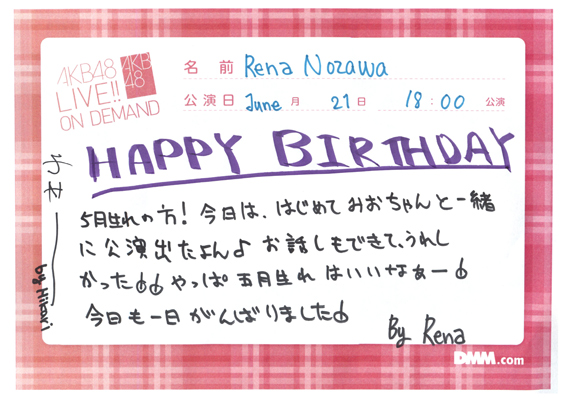 AKB48
LIVE!!
ON DEMAND
AKB
48
名前 Rena Nozawa
公演日 June 月 21 日 18:00 公演
HAPPY BIRTHDAY
5月生れの方！今日は、はじめてみおちゃんと一緒
に公演出たよん♪ お話しもできて、うれし
かった やっぱ五月生れはいいなぁー
今日も一日がんばりました
By Rena
by Hikari
DMM.com